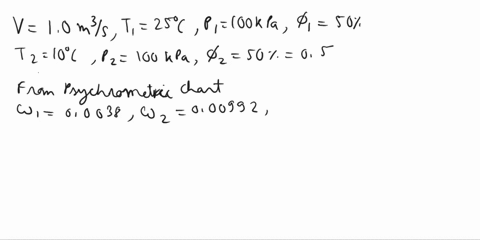 V = 1.0 m³/s, T₁ = 25°C, P₁ = 100 kPa, ϕ₁ = 50%
T₂ = 10°C, P₂ = 100 kPa, ϕ₂ = 50% = 0.5
From Psychrometric chart
ω₁ = 0.0038, ω₂ = 0.00992,